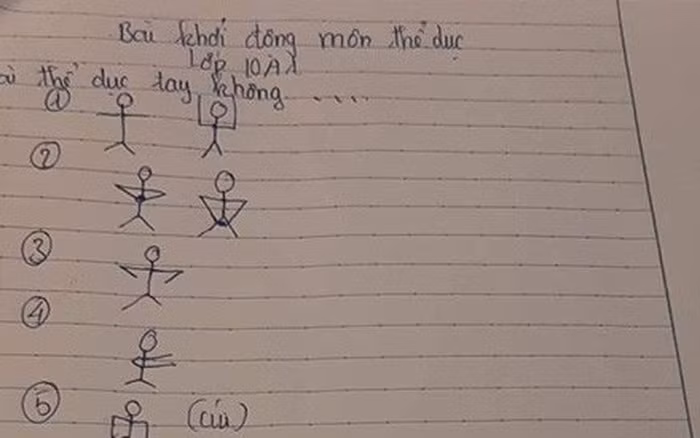 Bài khởi động môn thể dục
Lớp 10A1
thể dục tay không ....
①
②
③
④
⑤ (cúi)